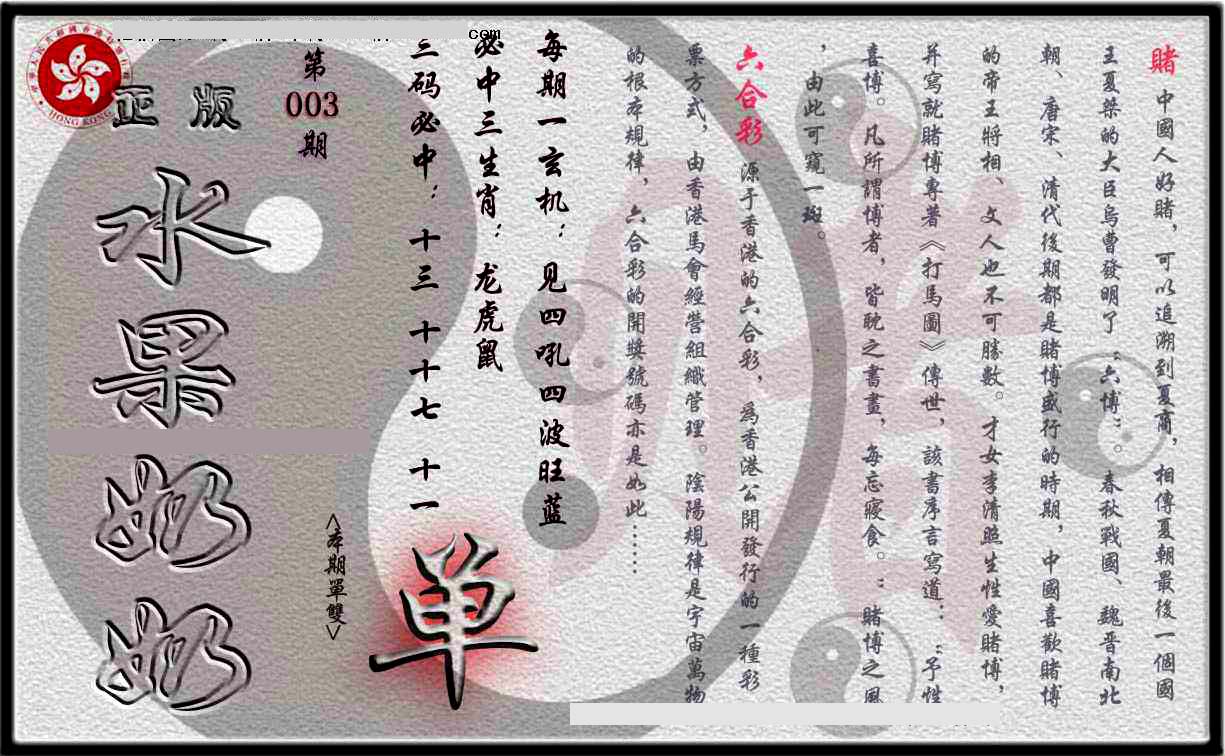 賭 中國人好賭，可以追溯到夏商，相傳夏朝最後一個國
王夏桀的大臣烏曹發明了“六博”。春秋戰國、魏晋南北
朝、唐宋、清代後期都是賭博盛行的時期，中國喜歡賭博
的帝王將相、文人也不可勝數。才女李清照生性愛賭博，
并寫就賭博專著《打馬圖》傳世，該書序言寫道：“予性
喜博。凡所謂博者，皆耽之書畫，每忘寢食。”賭博之風
，由此可窺一斑。
六合彩 源于香港的六合彩，為香港公開發行的一種彩
票方式，由香港馬會經營組織管理。陰陽規律是宇宙萬物
的根本規律，六合彩的開獎號碼亦是如此……
每期一玄机：见四吼四波旺蓝
必中三生肖：龙虎鼠
三码必中：十三 十十七 十一
单
<本期單雙>
第
003
期
正版
水果奶奶
com
HONG KONG